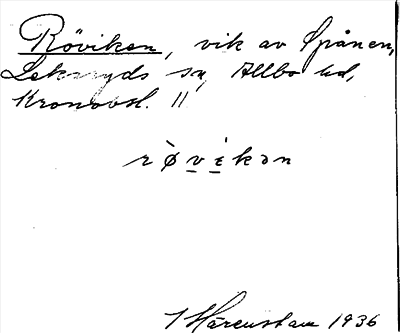 Röviken, vik av Spånen,
Lekaryds sn, Allbo hd,
Kronobsl. II
rø̀vikən
J Härenstam 1936